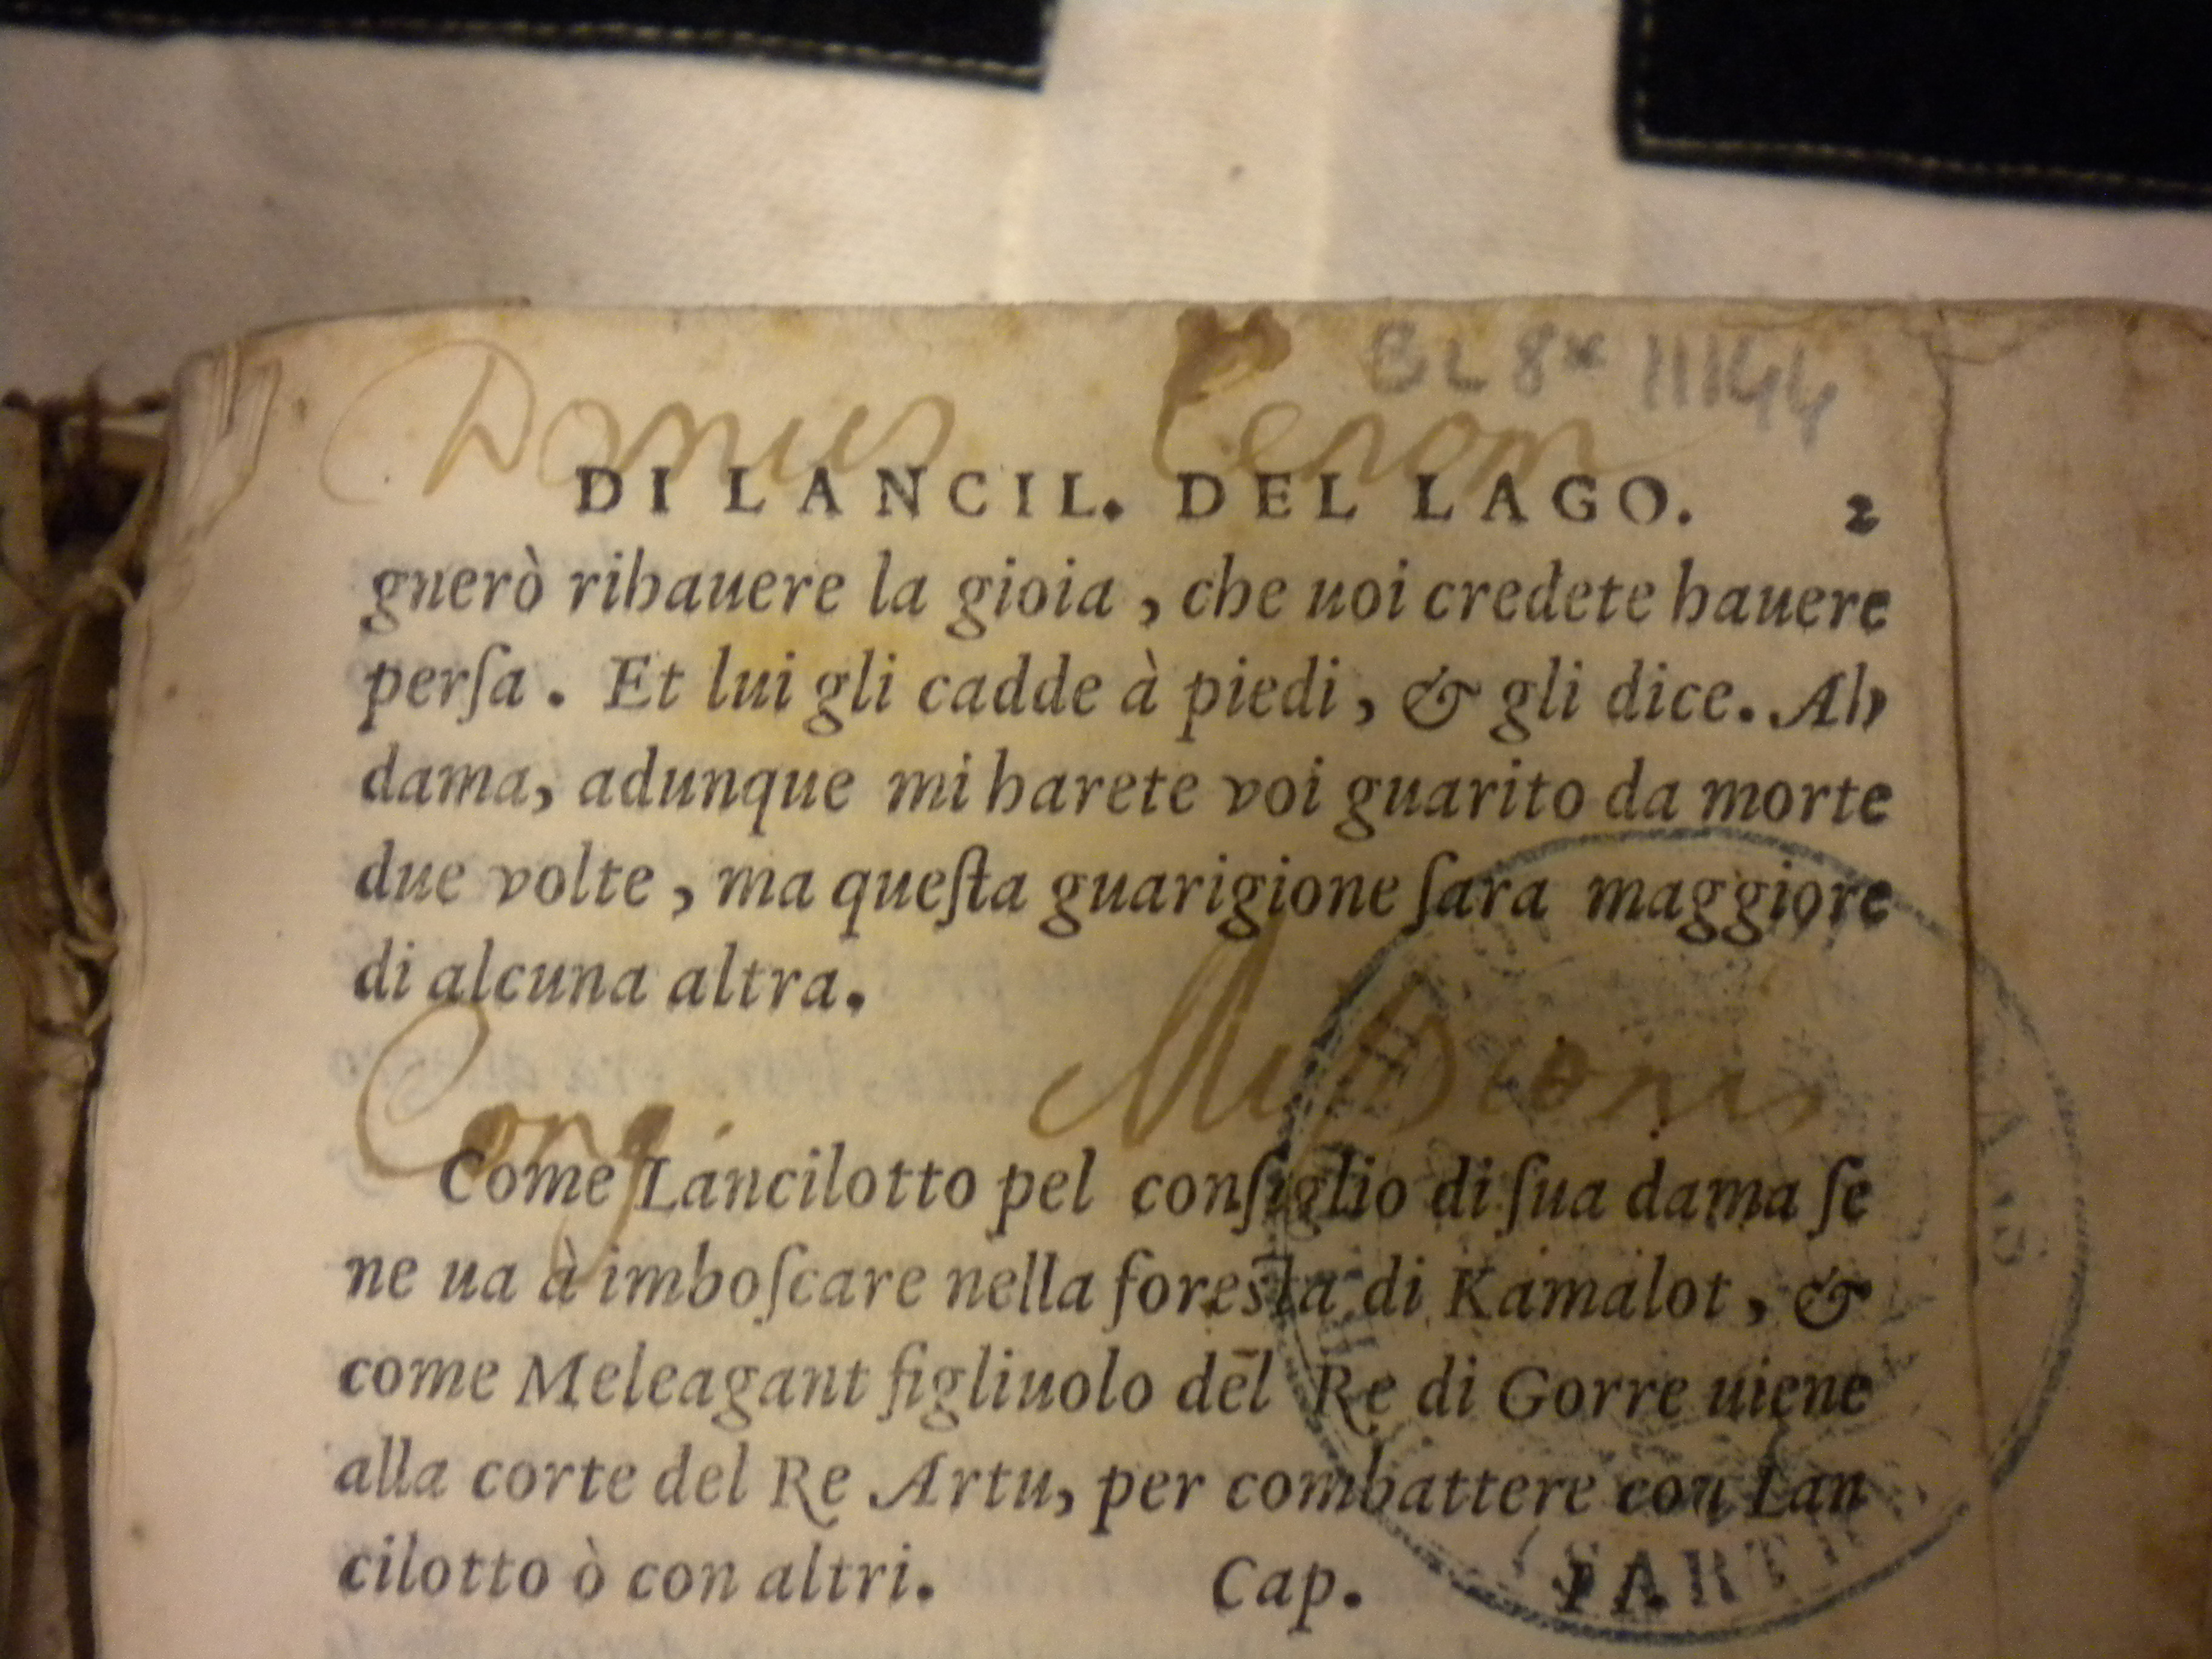 BL 8° 11144
Domus Cenom
DI LANCIL. DEL LAGO. 2
gnerò rihauere la gioia, che uoi credete hauere
perſa. Et lui gli cadde à piedi, & gli dice. Ah
dama, adunque mi harete voi guarito da morte
due volte, ma queſta guarigione ſara maggiore
di alcuna altra.
Cong. Missionis
Come Lancilotto pel conſiglio di ſua dama ſe
ne ua à imboſcare nella foresta di Kamalot, &
come Meleagant figliuolo del Re di Gorre uiene
alla corte del Re Artu, per combattere con Lan
cilotto ò con altri. Cap.